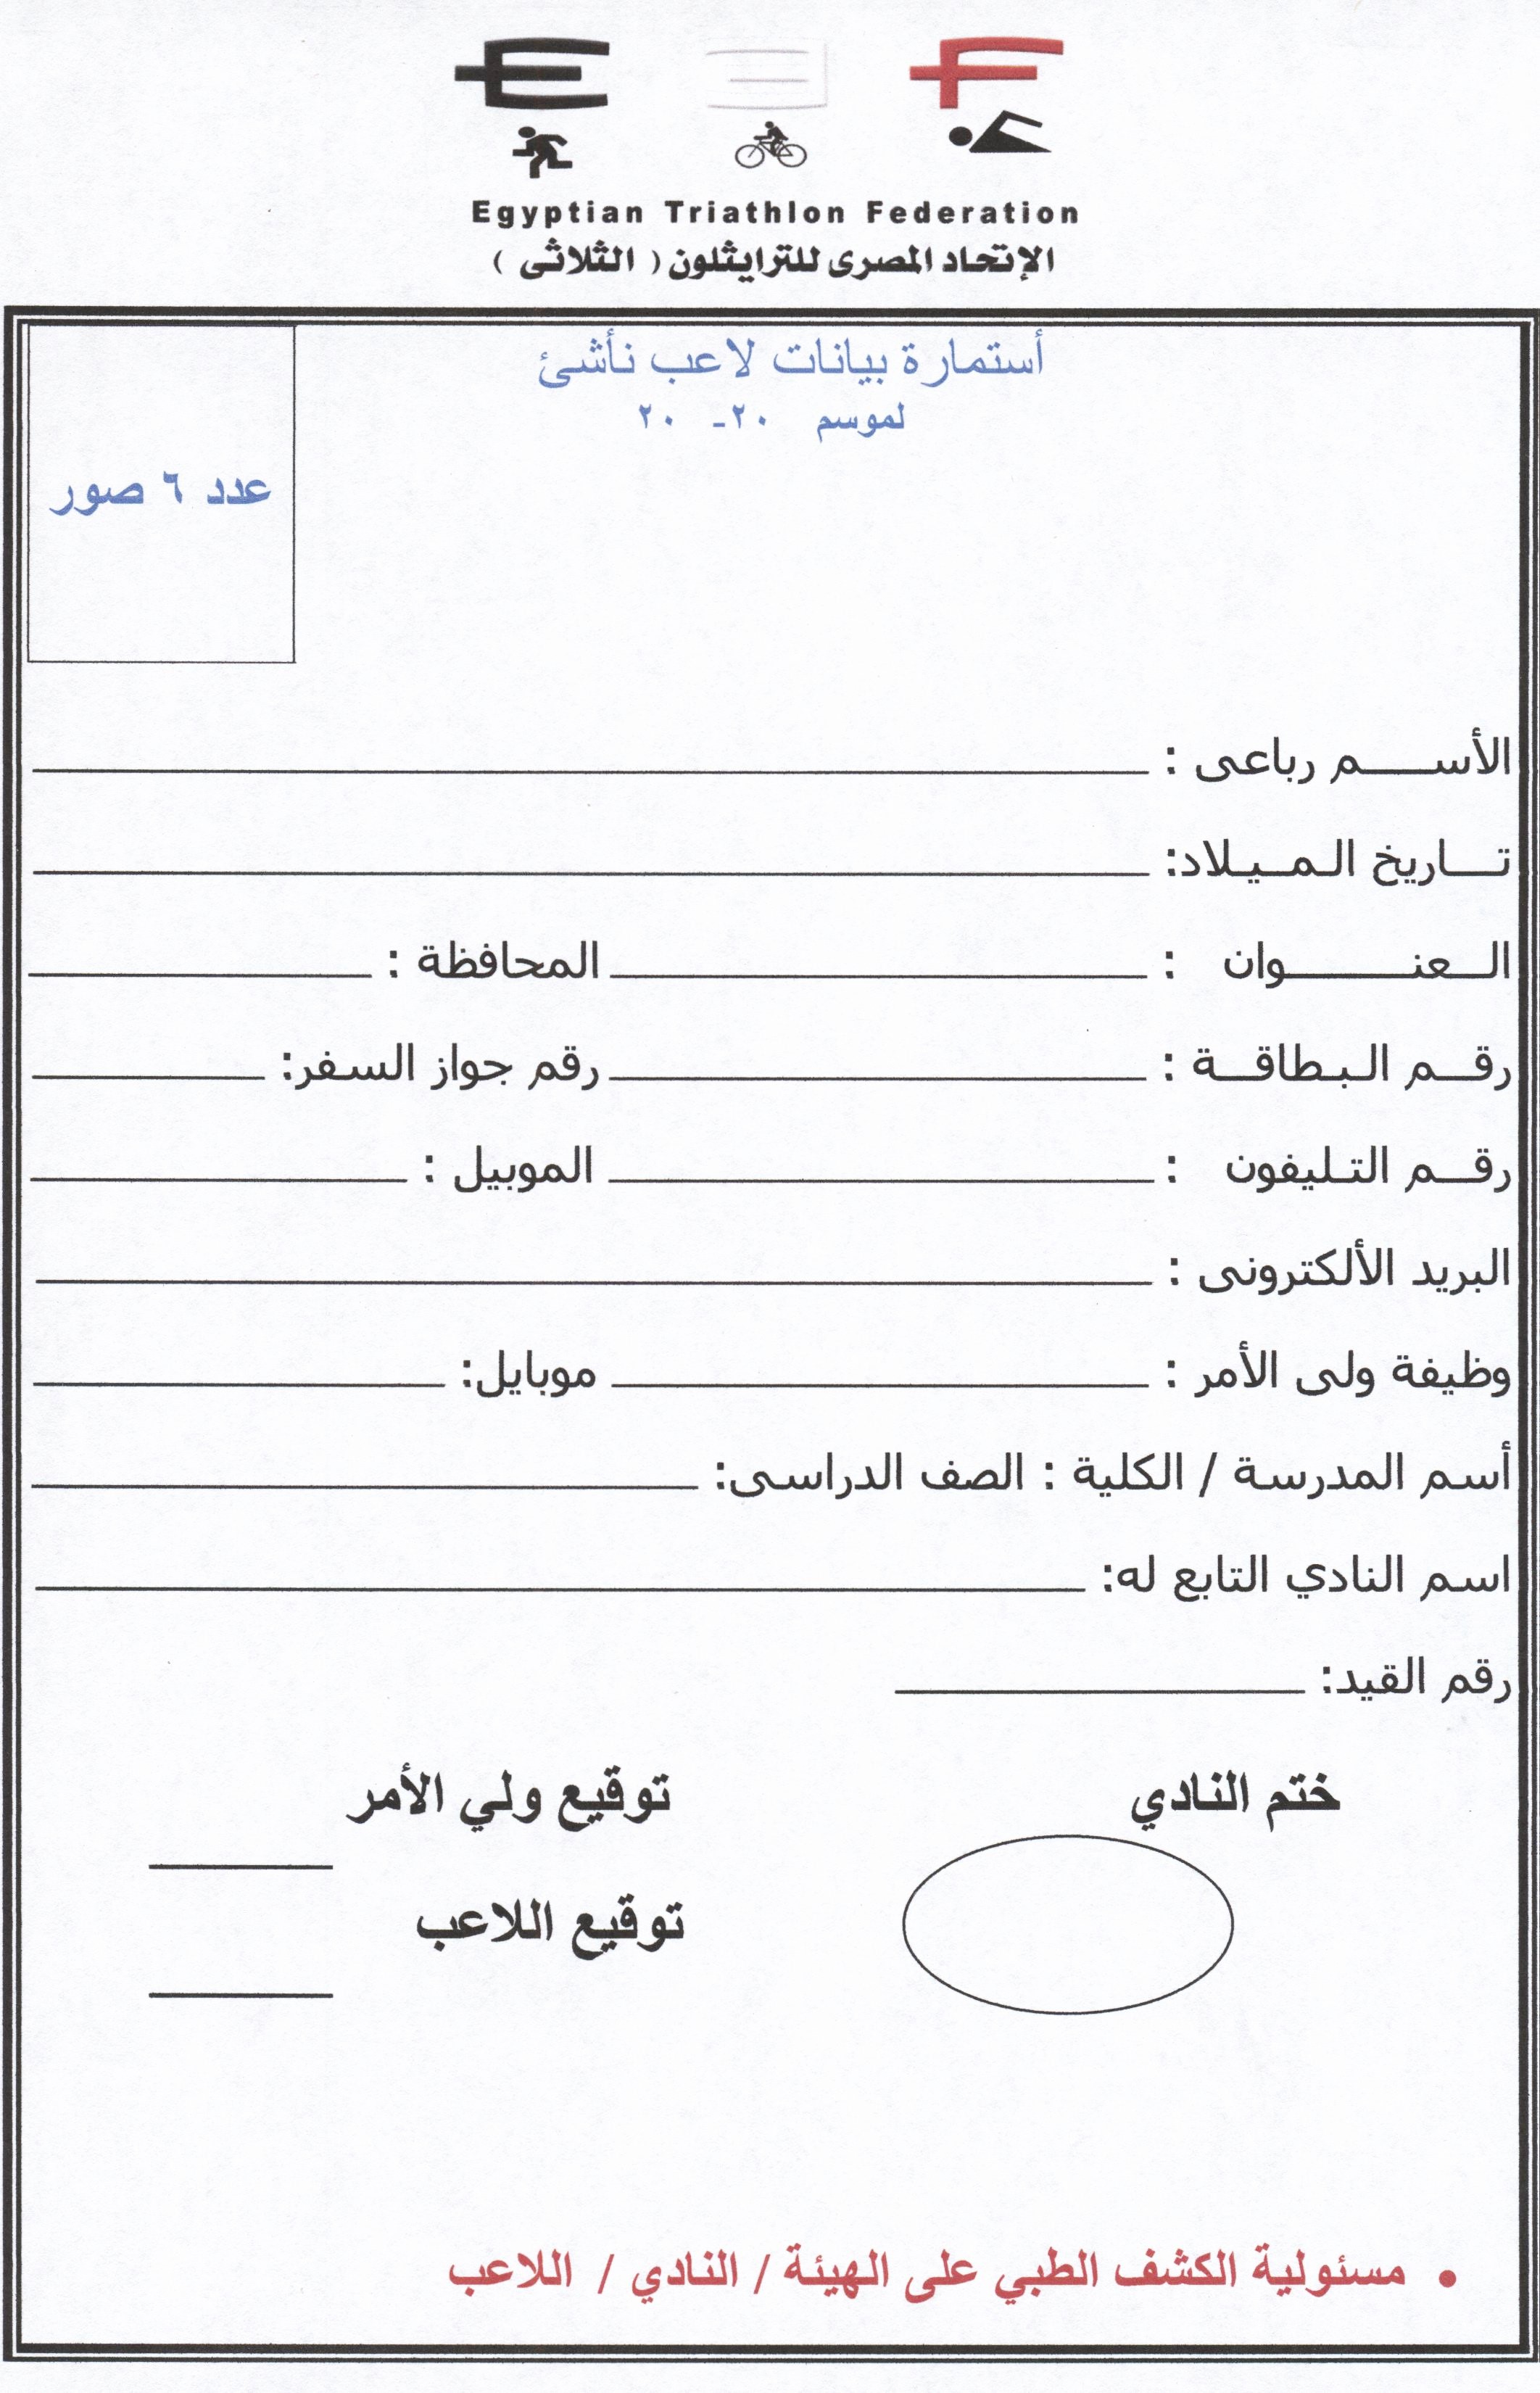 Egyptian Triathlon Federation
الإتحاد المصرى للترايثلون ( الثلاثى )
أستمارة بيانات لاعب نأشئ
لموسم ٢٠- ٢٠
عدد ٦ صور
الأسـم رباعى :
تـاريخ الـمـيـلاد:
الـعنـوان : المحافظة :
رقـم الـبـطاقـة : رقم جواز السفر:
رقـم التـليفون : الموبيل :
البريد الألكترونى :
وظيفة ولى الأمر : موبايل:
أسم المدرسة / الكلية : الصف الدراسى:
اسم النادي التابع له:
رقم القيد:
ختم النادي توقيع ولي الأمر
توقيع اللاعب
• مسئولية الكشف الطبي على الهيئة / النادي / اللاعب